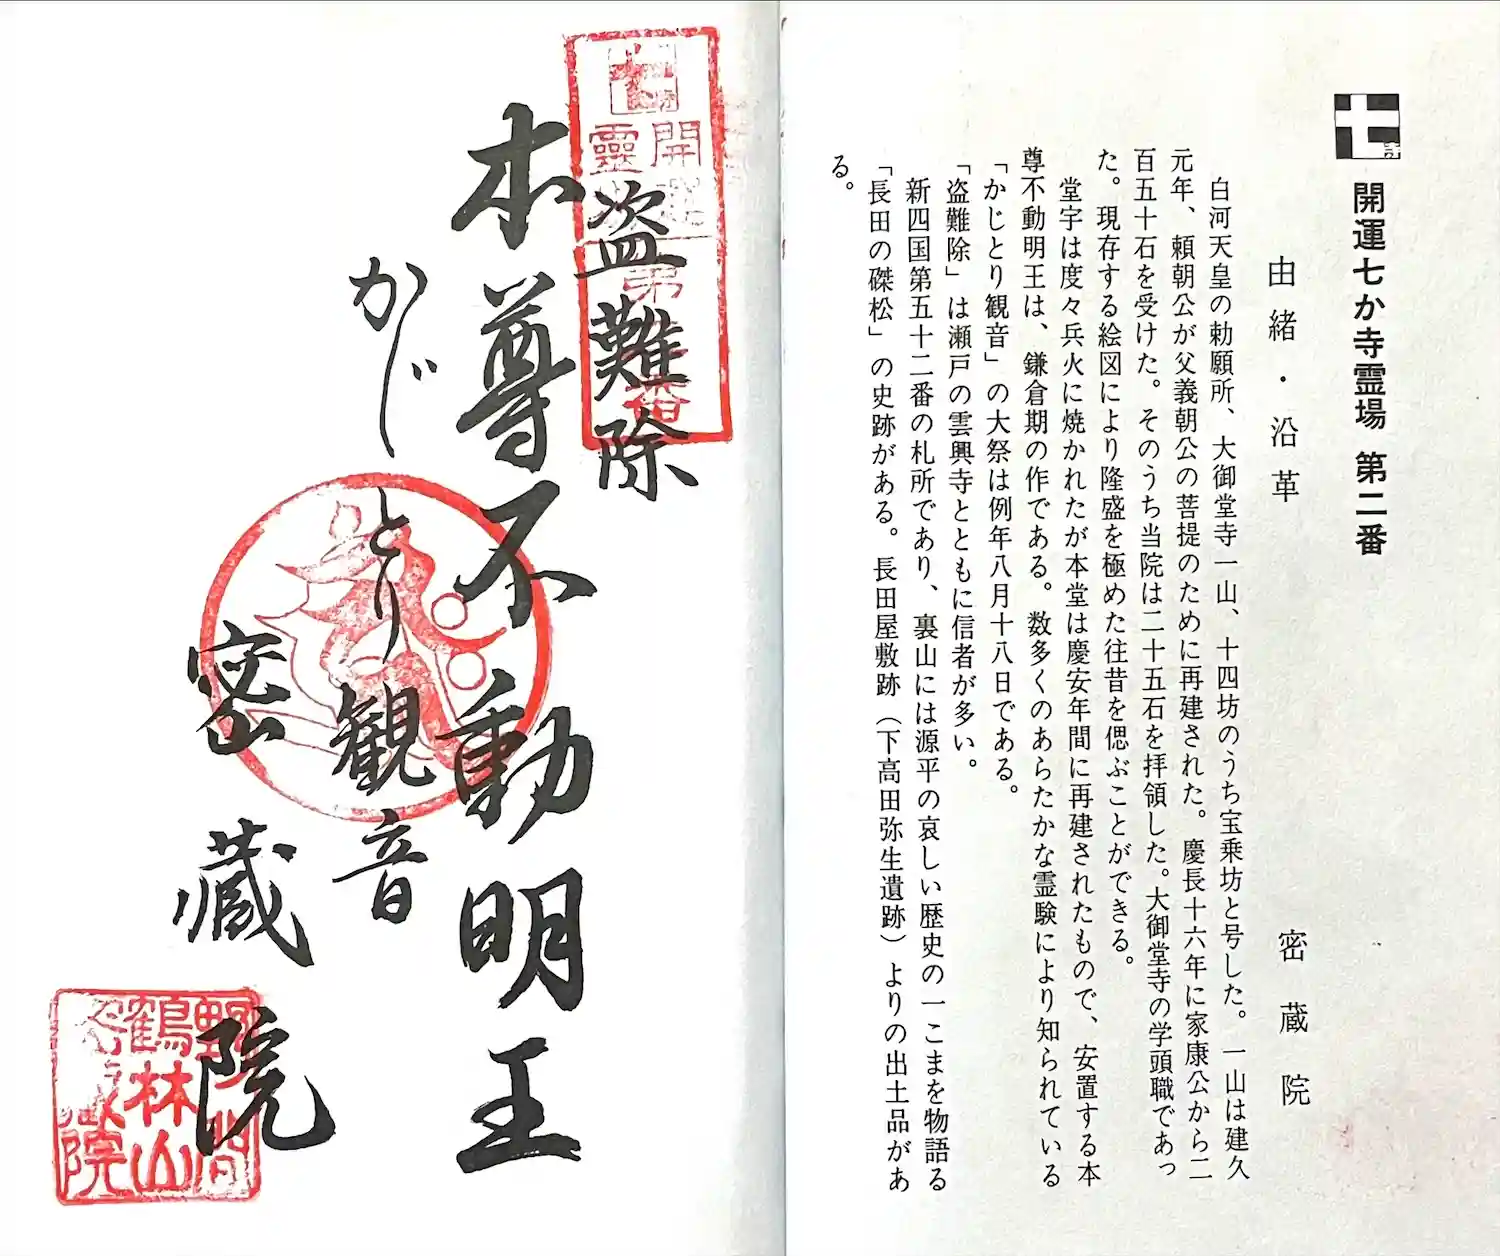 開運七か寺霊場 第二番
由緒・沿革
密蔵院
白河天皇の勅願所、大御堂寺一山、十四坊のうち宝乗坊と号した。一山は建久
元年、頼朝公が父義朝公の菩提のために再建された。慶長十六年に家康公から二
百五十石を受けた。そのうち当院は二十五石を拝領した。大御堂寺の学頭職であっ
た。現存する絵図により隆盛を極めた往昔を偲ぶことができる。
堂宇は度々兵火に焼かれたが本堂は慶安年間に再建されたもので、安置する本
尊不動明王は、鎌倉期の作である。数多くのあらたかな霊験により知られている
「かじとり観音」の大祭は例年八月十八日である。
「盗難除」は瀬戸の雲興寺とともに信者が多い。
新四国第五十二番の札所であり、裏山には源平の哀しい歴史の一こまを物語る
「長田の磔松」の史跡がある。長田屋敷跡（下高田弥生遺跡）よりの出土品があ
る。
盗難除
本尊不動明王
かじとり観音
密蔵院